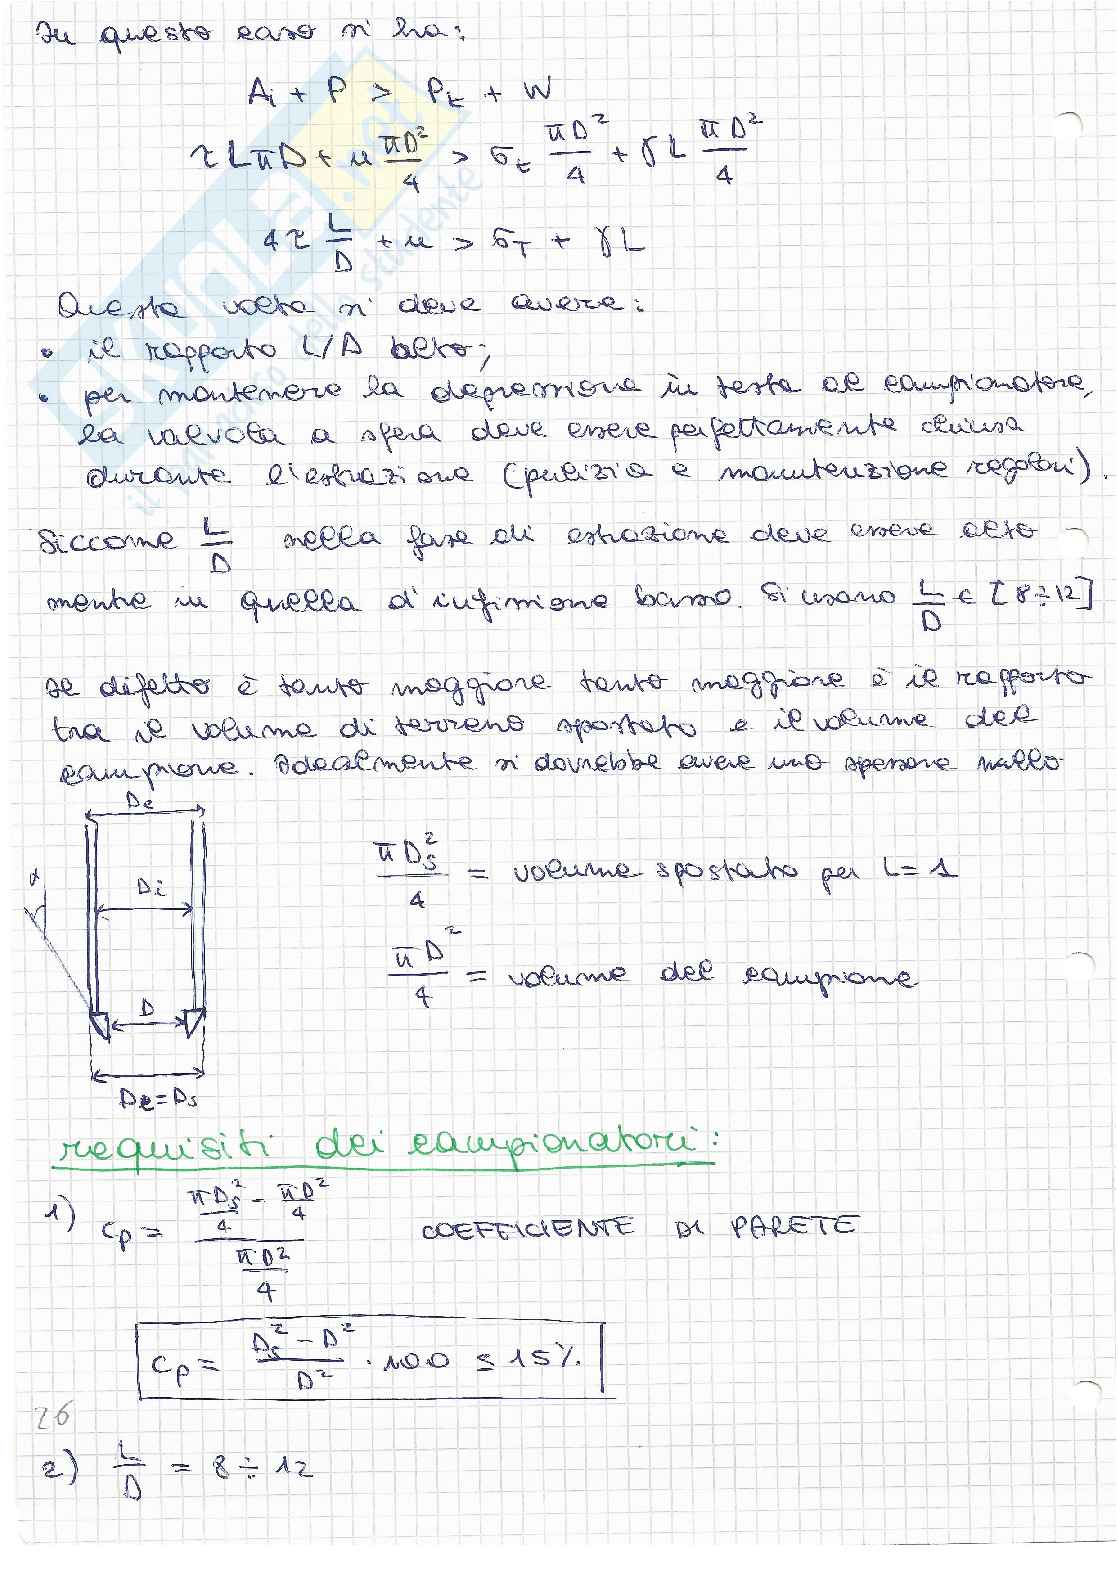 In questo caso si ha:
Ai + P > Pt + W
τLπD + u πD²/4 > σt πD²/4 + γL πD²/4
4τ L/D + u > σT + γL
Questa volta si deve avere:
• il rapporto L/D alto;
• per mantenere la depressione in testa al campionatore,
la valvola a sfera deve essere perfettamente chiusa
durante l'estrazione (pulizia e manutenzione regolari).
Siccome L/D nella fase di estrazione deve essere alto
mentre in quella d'infissione basso. Si usano L/D ∈ [8÷12]
Il difetto è tanto maggiore tanto maggiore è il rapporto
tra il volume di terreno spostato e il volume del
campione. Idealmente si dovrebbe avere uno spessore nullo
De
α
Di
D
De=Ds
πDs²/4 = volume spostato per L=1
πD²/4 = volume del campione
requisiti dei campionatori:
1) cp = (πDs²/4 - πD²/4) / (πD²/4) COEFFICIENTE DI PARETE
cp = (Ds² - D²)/D² · 100 ≤ 15%
26
2) L/D = 8 ÷ 12